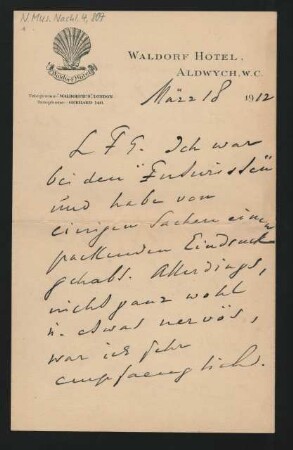 N. Mus. Nachl. 4, 887
WALDORF HOTEL,
ALDWYCH, W.C.
Waldorf Hotel
Telegrams: "WALDORFIUS, LONDON"
Telephone: GERRARD 1415
März 18 1912
L F G. Ich war
bei den "Futuristen"
und habe von
einigen Sachen einen
packenden Eindruck
gehabt. Allerdings,
nicht ganz wohl
u. etwas nervös,
war ich sehr
empfaenglich.